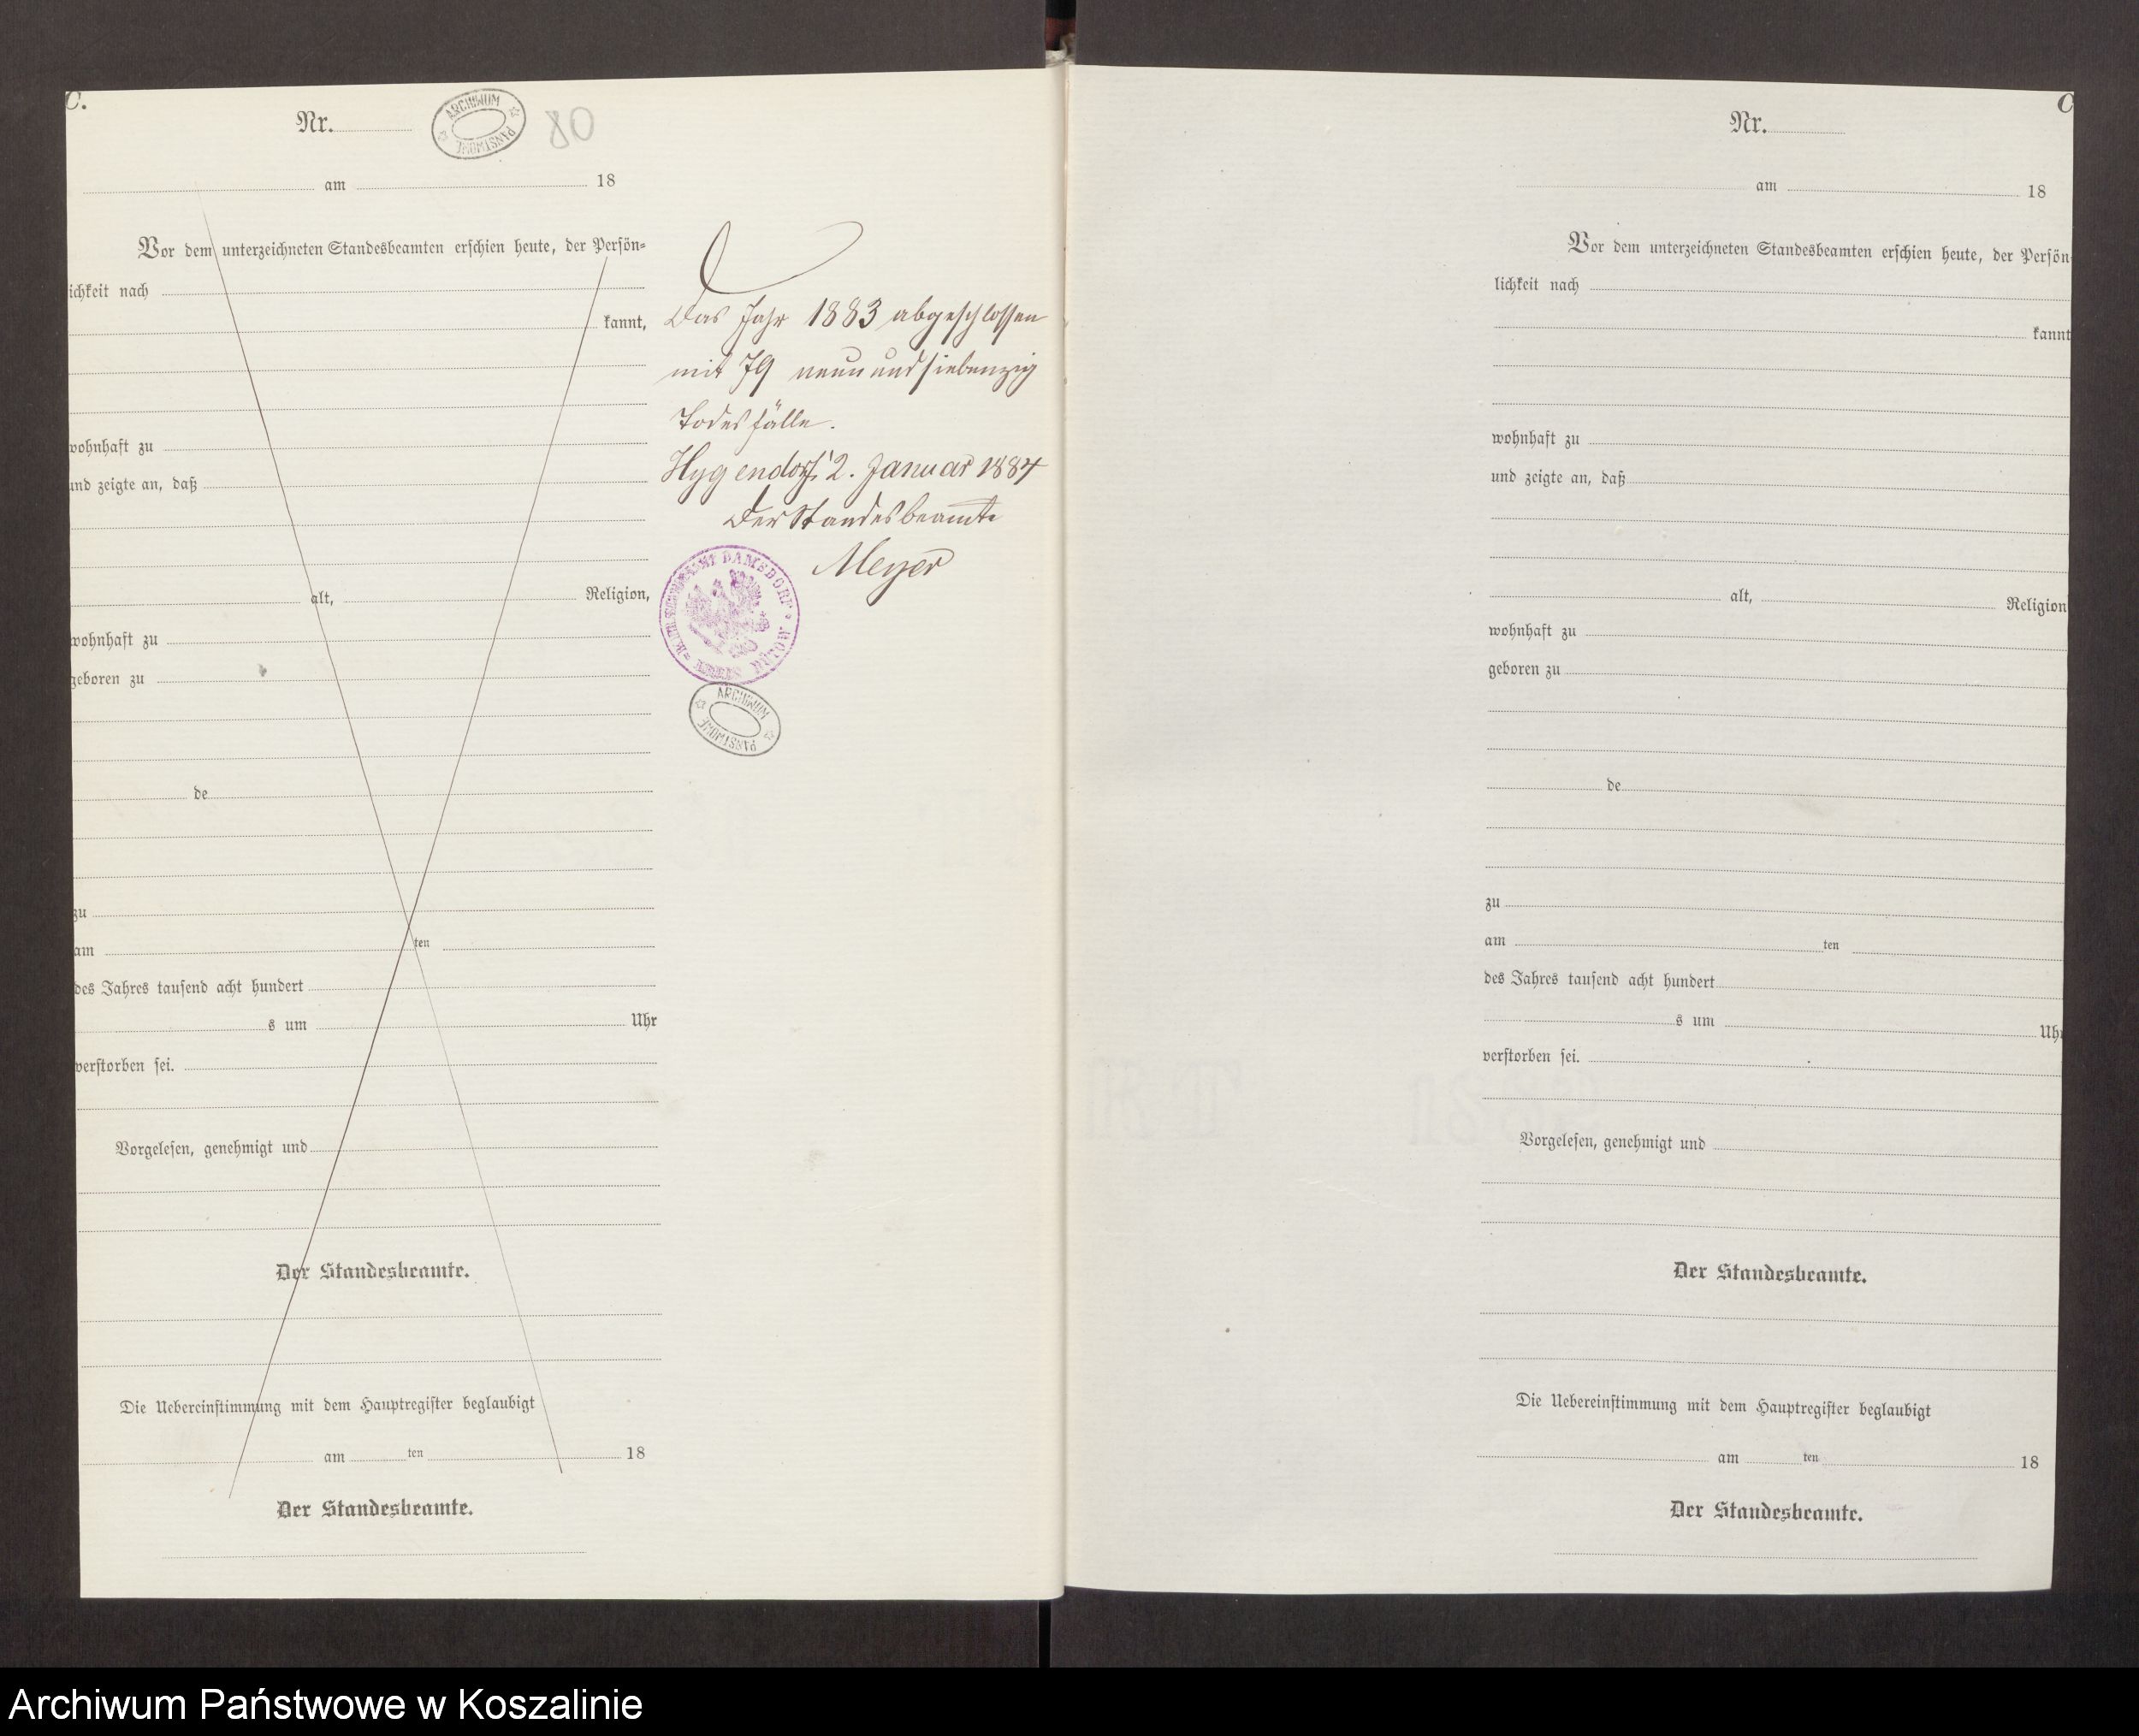 C.
Nr.
ARCHIWUM PAŃSTWOWE
80
am 18
Vor dem unterzeichneten Standesbeamten erschien heute, der Persön-
lichkeit nach
kannt,
wohnhaft zu
und zeigte an, daß
alt, Religion,
wohnhaft zu
geboren zu
de
zu
am ten
des Jahres tausend acht hundert
s um Uhr
verstorben sei.
Vorgelesen, genehmigt und
Der Standesbeamte.
Die Uebereinstimmung mit dem Hauptregister beglaubigt
am ten 18
Der Standesbeamte.
Das Jahr 1883 abgeschlossen
mit 79 neun und siebenzig
Todesfälle.
2. Januar 1884
Der Standesbeamte
Meyer
STANDESAMT DAMSDORF
ARCHIWUM PAŃSTWOWE
C
Nr.
am 18
Vor dem unterzeichneten Standesbeamten erschien heute, der Persön
lichkeit nach
kannt
wohnhaft zu
und zeigte an, daß
alt, Religion
wohnhaft zu
geboren zu
de
zu
am ten
des Jahres tausend acht hundert
s um Uhr
verstorben sei.
Vorgelesen, genehmigt und
Der Standesbeamte.
Die Uebereinstimmung mit dem Hauptregister beglaubigt
am ten 18
Der Standesbeamte.
Archiwum Państwowe w Koszalinie